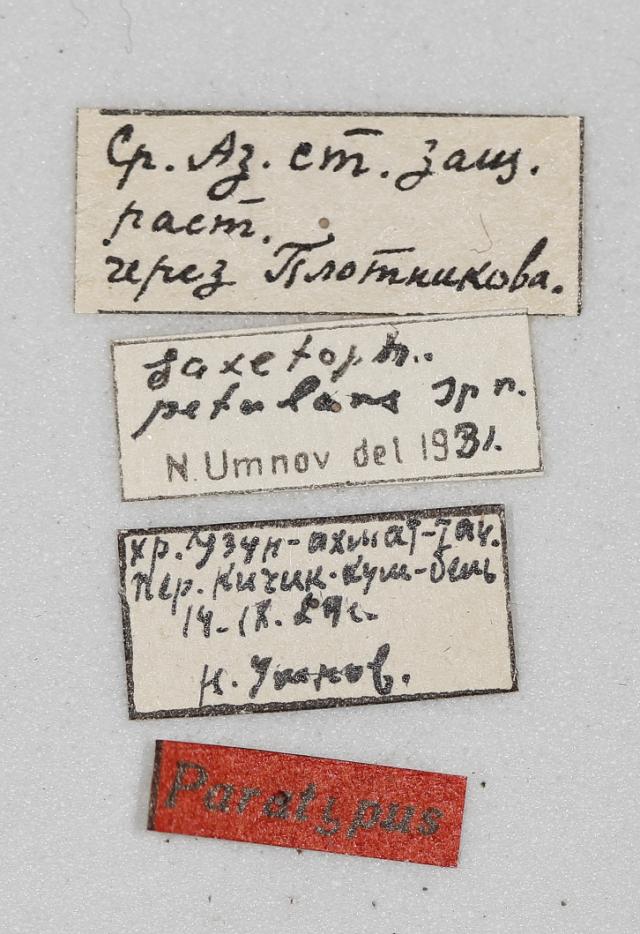 Ср. Аз. ст. защ.
раст.
через Плотникова.
saxetoph.
petulans sp n.
N. Umnov del 1931.
хр. Узун-ахмат-Тау.
пер. Кичик-Кум-бель
14. IX. 29 г.
Н. Умнов.
Paratypus